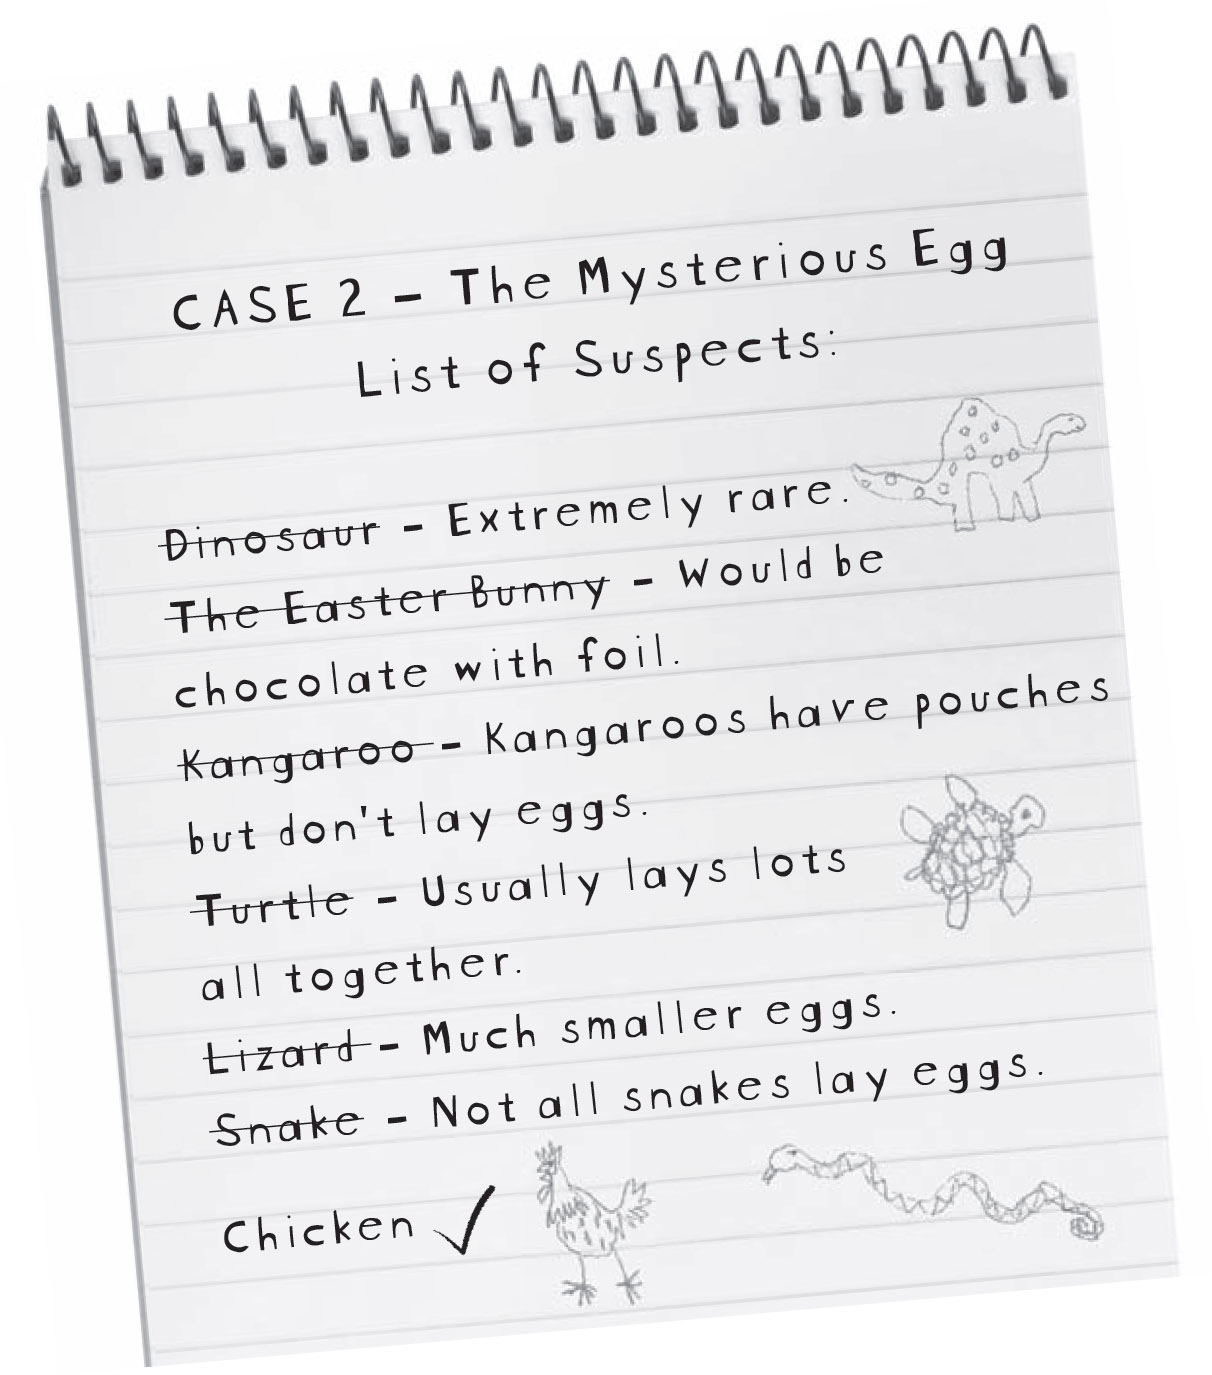 CASE 2 – The Mysterious Egg
List of Suspects:
Dinosaur – Extremely rare.
The Easter Bunny – Would be
chocolate with foil.
Kangaroo – Kangaroos have pouches
but don't lay eggs.
Turtle – Usually lays lots
all together.
Lizard – Much smaller eggs.
Snake – Not all snakes lay eggs.
Chicken ✓